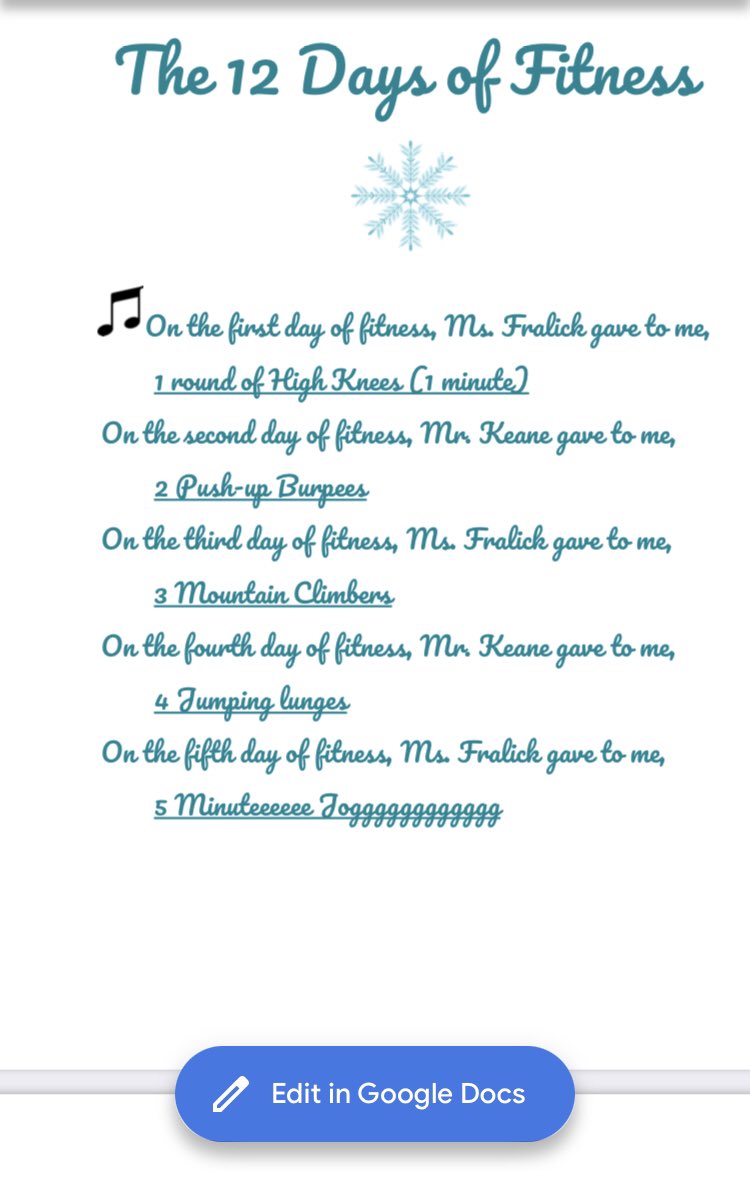 The 12 Days of Fitness
On the first day of fitness, Ms. Fralick gave to me,
1 round of High Knees (1 minute)
On the second day of fitness, Mr. Keane gave to me,
2 Push-up Burpees
On the third day of fitness, Ms. Fralick gave to me,
3 Mountain Climbers
On the fourth day of fitness, Mr. Keane gave to me,
4 Jumping lunges
On the fifth day of fitness, Ms. Fralick gave to me,
5 Minuteeeeee Joggggggggggggg
Edit in Google Docs